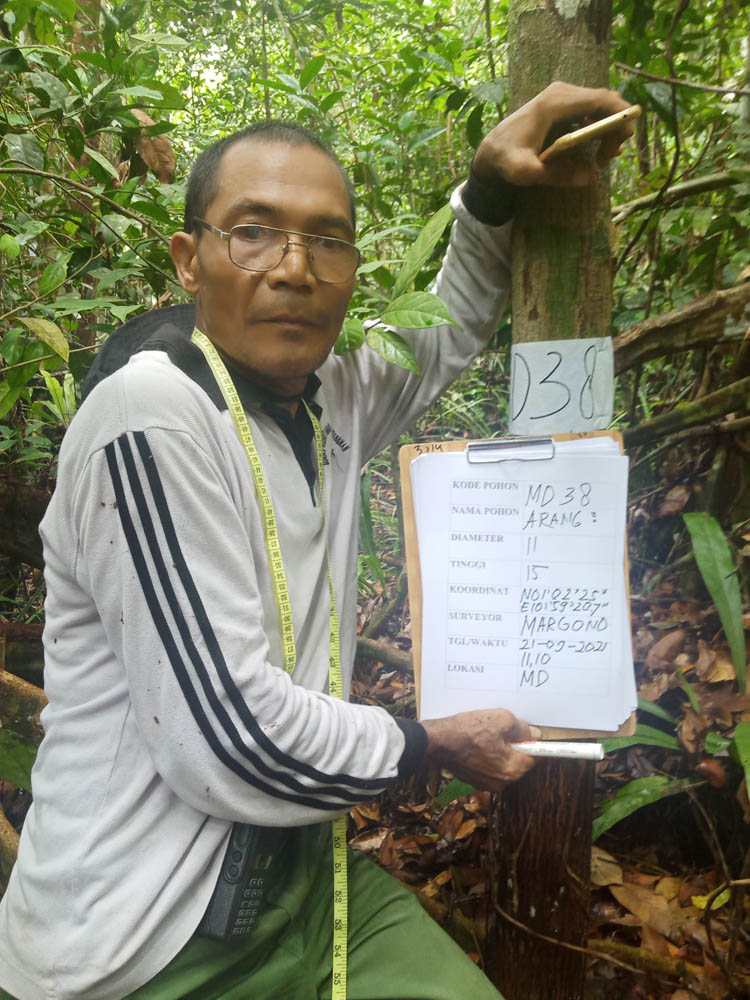 D38
37/4
KODE POHON MD 38
NAMA POHON ARANG 2
DIAMETER 11
TINGGI 15
KOORDINAT N01°02'25"
E101°59'20,7"
SURVEYOR MARGONO
TGL/WAKTU 21-09-2021
11,10
LOKASI MD
49
50
51
52
53
54
55